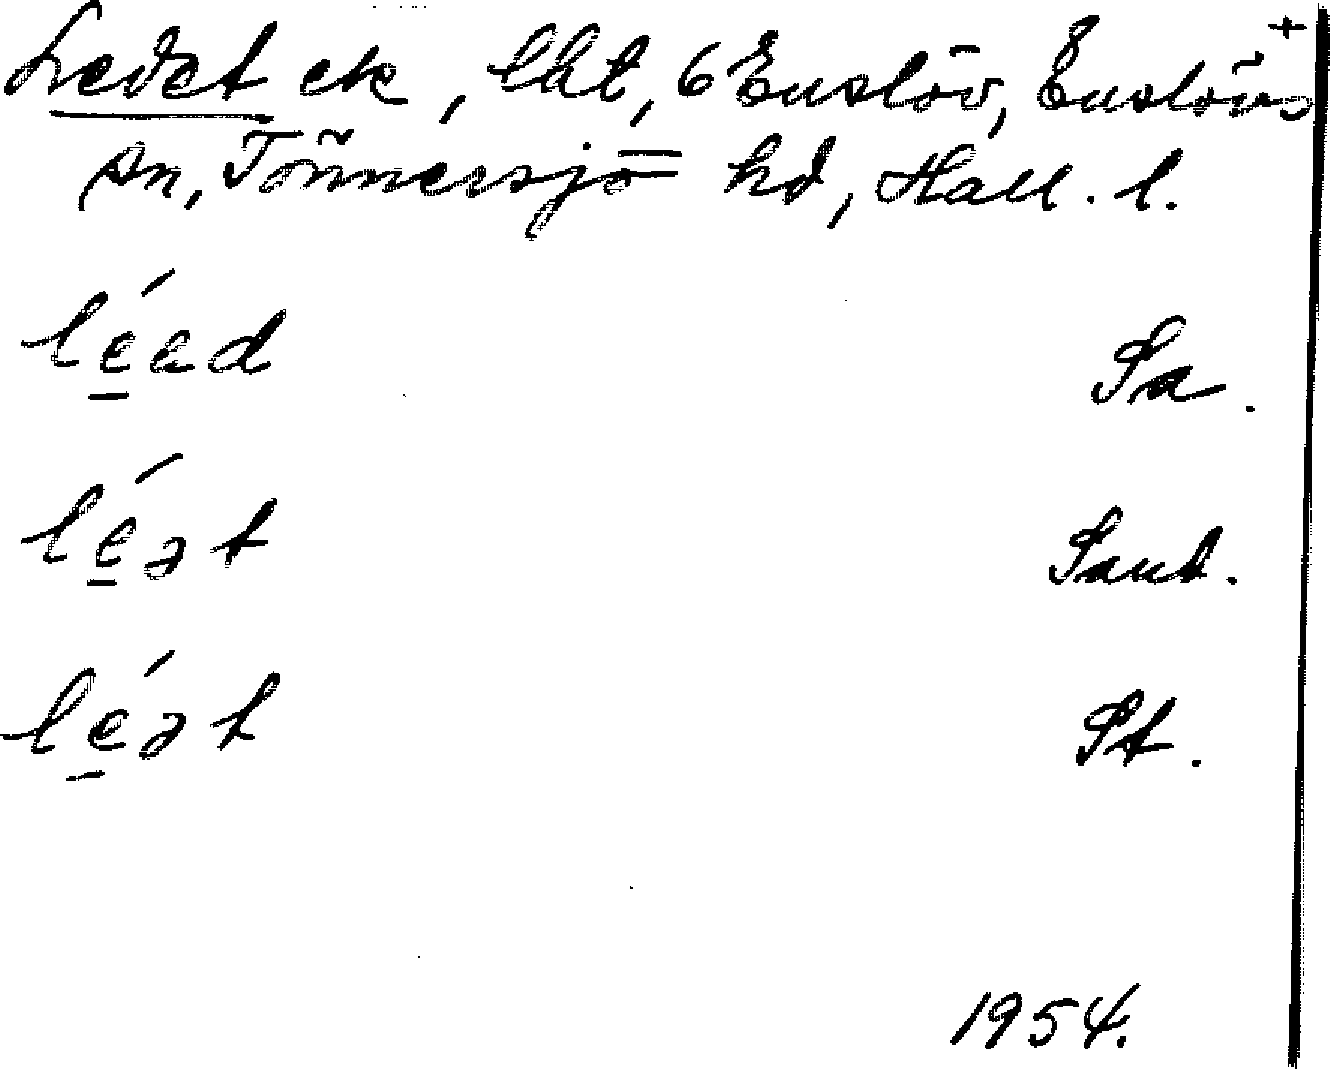 +
Ledet ek, lht, 6 Enslöv, Enslövs
sn, Tönnersjö hd, Hall. l.
lé̱ad Sa.
lé̱ət Sand.
lé̱ət St.
1954.